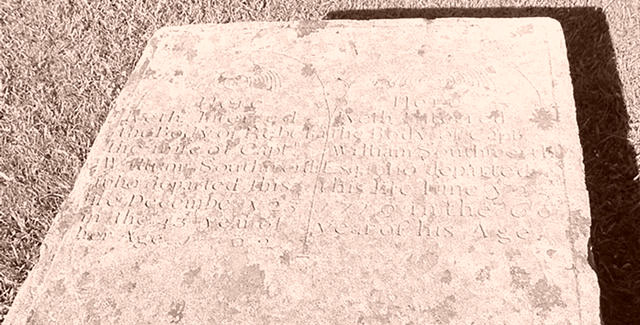 Here
lieth Interred
the Body of
the wife of Capt
William Southworth
who departed this
life Decembe
in the 43 year of
her Age
Here
lieth Interred
the Body of Capt
William Southworth
Esq who departed
this life June
in the
year of his Age